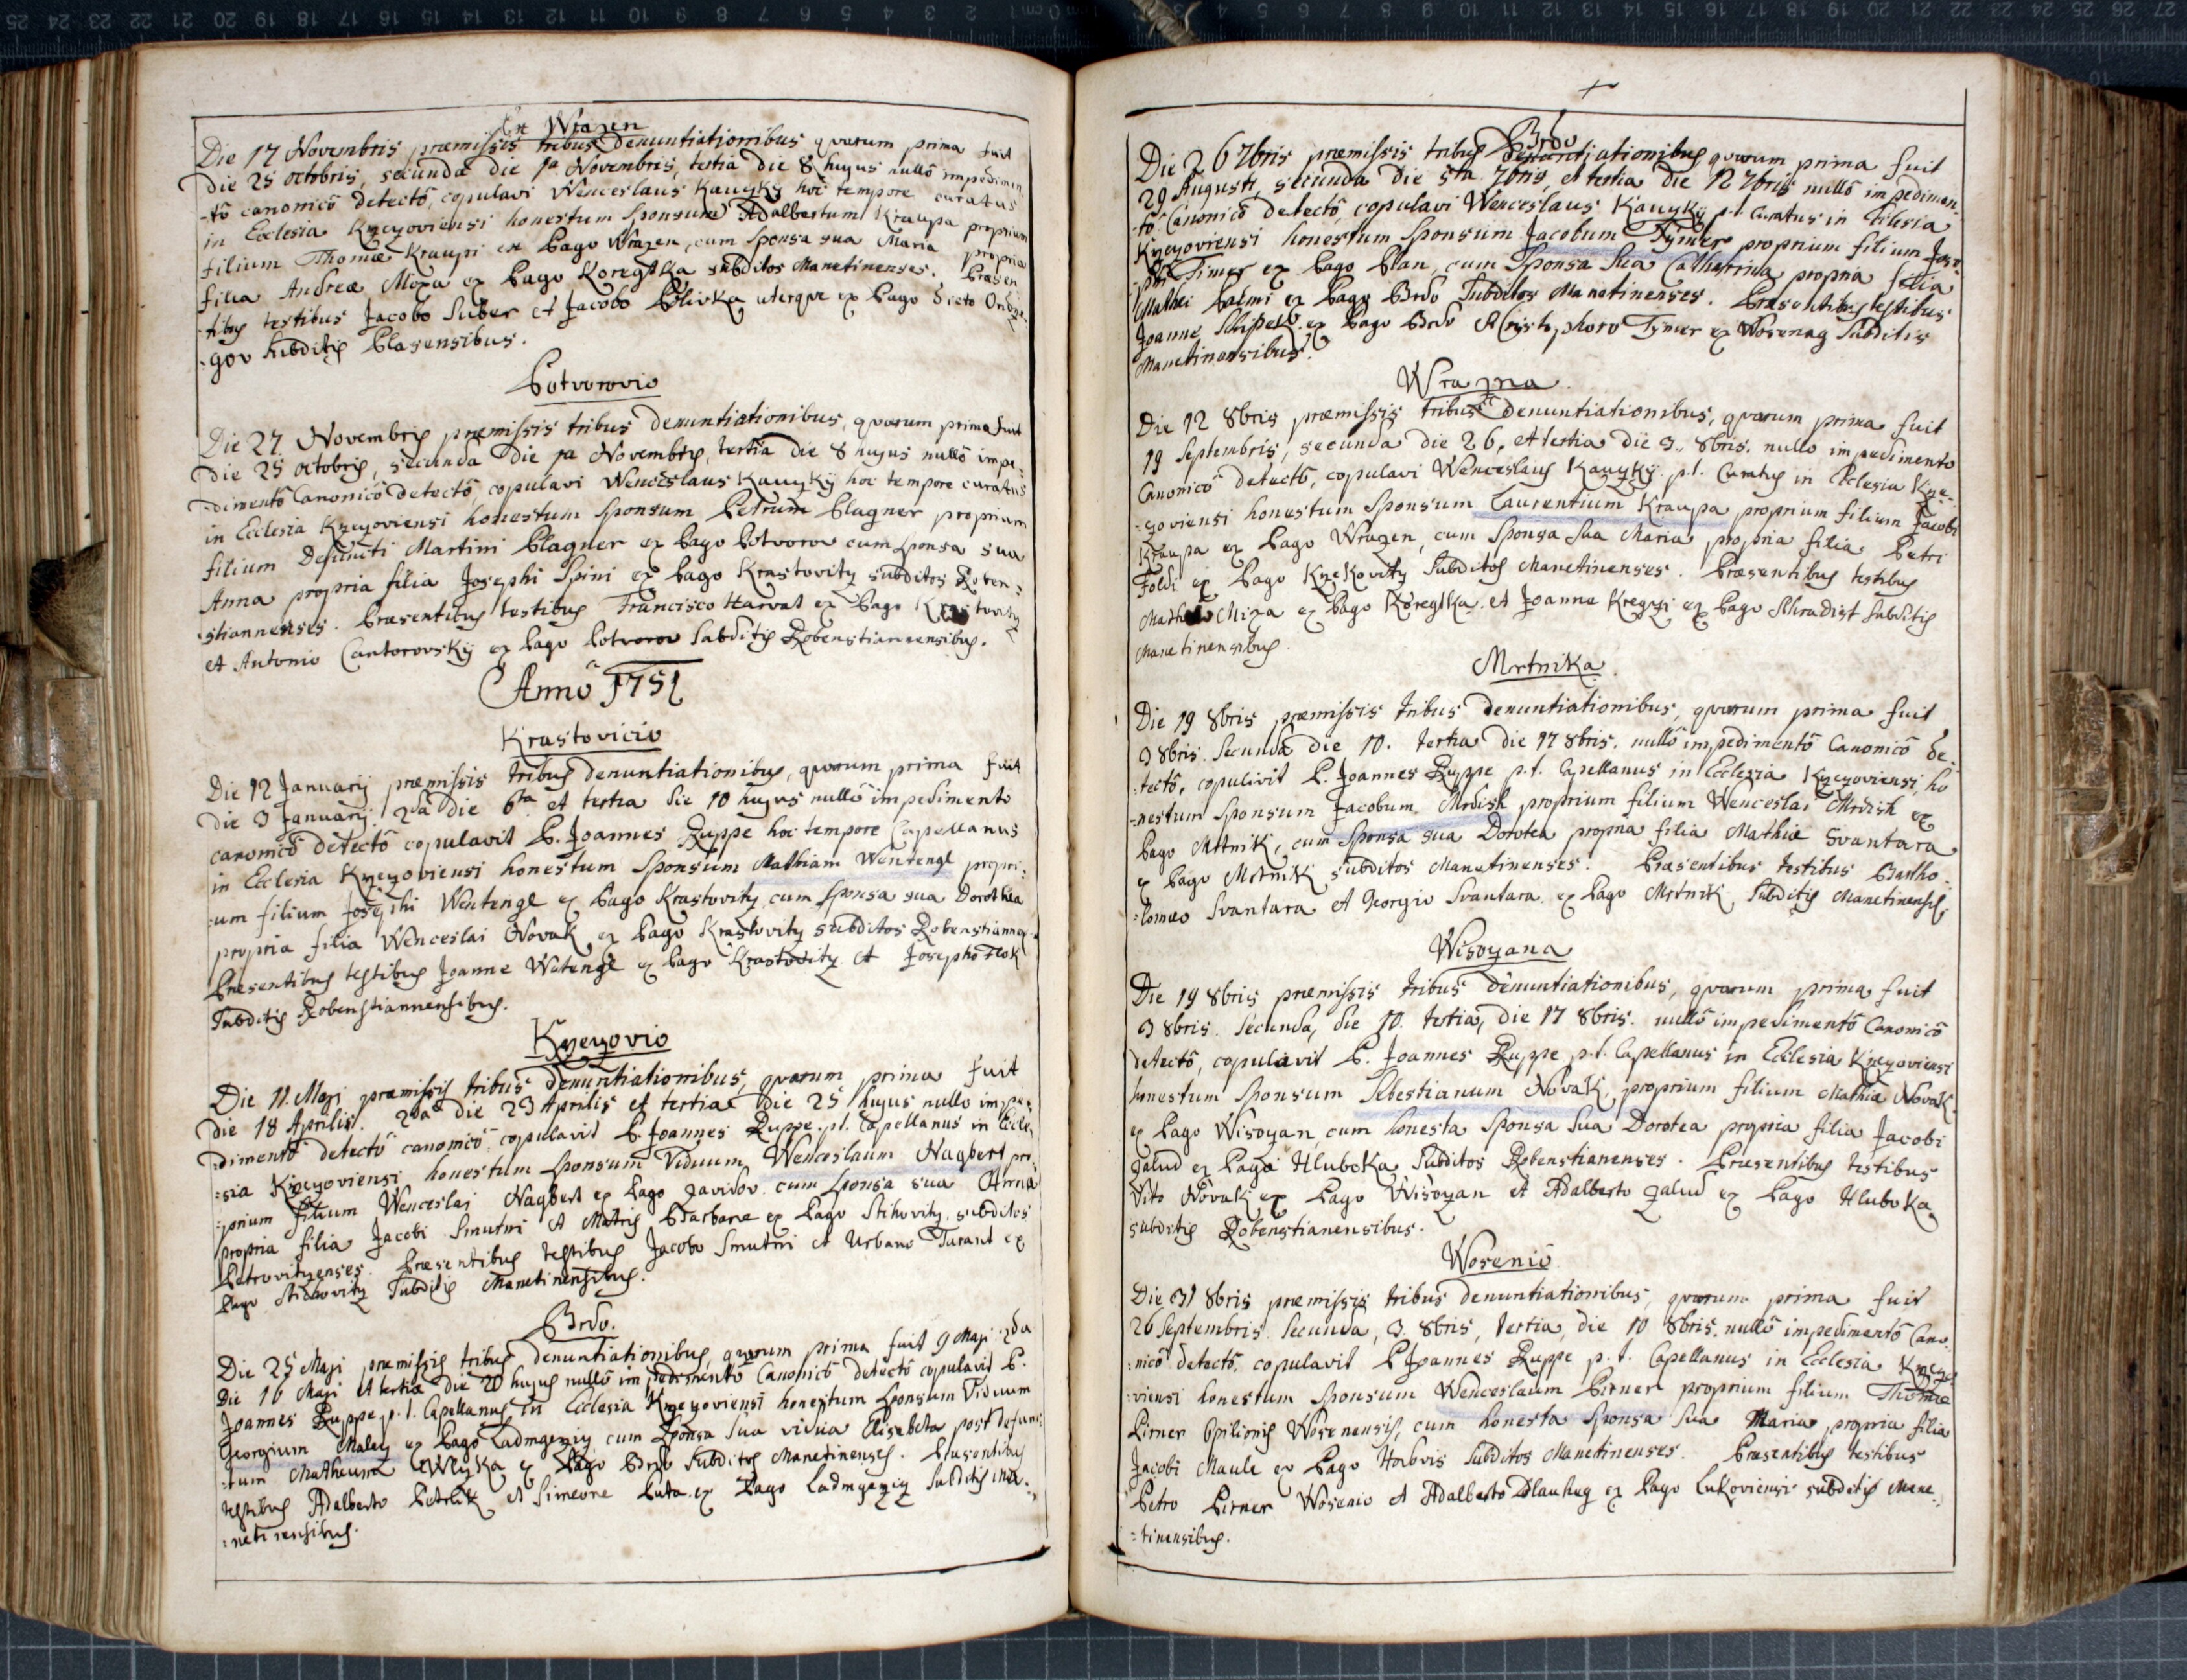 Ex Wrazen
Die 17 Novembris præmissis tribus denuntiationibus quarum prima fuit
die 25 octobris, secunda die 1a Novembris, tertia die 8 hujus nullô impedimen
-tô canonicô detectô, copulavi Wenceslaus Kauzky hoc tempore curatus
in Ecclesia Knezoviensi honestum Sponsum Adalbertum Kraupa proprium
filium Thomæ Kraupi ex Pago Wrazen, cum Sponsa sua Maria propria
filia Andreæ Mixa ex Pago Koregtka subditos Manetinenses. Præsen
-tibus testibus Jacobo Suber et Jacobo Plivka uterque ex Pago dicto
-gov subditis Plasensibus.
Potvorovio
Die 27. Novembris præmissis tribus denuntiationibus, quarum prima fuit
Die 25 octobris, secunda die 1a Novembris, tertia die 8 hujus nullô impe:
-dimentô Canonicô detectô copulavi Wenceslaus Kauzkÿ hoc tempore curatus
in Ecclesia Knezoviensi honestum Sponsum Petrum Plagner proprium
filium Defuncti Martini Plagner ex Pago Potvorov cum sponsa sua
Anna propria filia Josephi Spini ex Pago Krastovitz subditos Roben:
stiannenses. Præsentibus testibus Francisco Harvat ex Pago
et Antonio Cantorovskÿ ex Pago Potvorov Subditis Robenstiannensibus.
Annô 1751
Krastovicio
Die 12 Januarij præmissis tribus denuntiationibus, quarum prima fuit
die 3 Januarij. 2da die 6ta et tertia die 10 hujus nullô impedimento
canonicô detectô copulavit P. Joannes Ruppe hoc tempore Capellanus
in Ecclesia Knezoviensi honestum Sponsum Mathiam Wentengl propri:
:um filium Josephi Wentengl ex Pago Krastovitz cum sponsa sua Dorothea
propria filia Wenceslai Novak ex Pago Krastovitz subditos
Præsentibus testibus Joanne Watengl ex Pago Krastovitz et Josepho Flok
Subditis Robenstiannensibus.
Knezovio
Die 11. Maji præmissis tribus denuntiationibus, quarum prima fuit
die 18 Aprilis. 2da die 23 Aprilis et tertia die 25 hujus nullo impe:
-dimentô detectô canonicô copulavit P. Joannes Ruppe p.t. Capellanus in Eccle:
:sia Knezoviensi honestum sponsum Viduum Wenceslaum Nagbert pro:
:prium filium Wenceslai Nagbert ex Pago Zavidov cum sponsa sua Anna
propria filia Jacobi Smutni et Matris Barbaræ ex Pago Stihovitz, subditos
Petrovitzenses. Præsentibus testibus Jacobo Smutni et Urbano Turant ex
Pago Stichovitz Subditis Manetinensibus.
Brdo.
Die 25 Maji præmissis tribus denuntiationibus, quarum prima fuit 9 Maji 2da
Die 16 Maji et tertia die 20 hujus nullô impedimentô Canonicô detectô copulavit P.
Joannes Ruppe p.t. Capellanus in Ecclesia Knezoviensi honestum sponsum Viduum
Georgium Maley ex Pago Ladmgeziz cum Sponsa sua vidua Elisabeta post defunc:
:tum Matheum ex Pago Brdo Subditos Manetinenses. Præsentibus
testibus Adalberto Petrlik et Simeone Puta ex Pago Ladmgeziz subditis Ma:
:netinensibus.
Brdo
Die 26 7bris præmissis tribus denuntiationibus quarum prima fuit
29 Augusti, secunda die 5ta 7bris, et tertia die 12 7bris nullô impedimen:
-tô Canonicô detectô copulavi Wenceslaus Kauzkÿ p.t. Curatus in Eclesia
Knezoviensi honestum Sponsum Jacobum Tÿmer proprium filium
Timer ex Pago Plan, cum Sponsa sua Catharina propria filia
Mathei Palmi ex Pago Brdo Subditos Manetinenses. Præsentibus testibus
Joanne ex Pago Brdo et Cristophoro Tymer ex Wosenag Subditis
Manetinensibus.
Wrazna.
Die 12 8bris præmissis tribus denuntiationibus, quarum prima fuit
19 Septembris, secunda die 26, et tertia die 3. 8bris. nullo impedimento
Canonicô detectô, copulavi Wenceslaus Kauzkÿ p.t. Curatus in Ecclesia Kne-
-zoviensi honestum Sponsum Laurentium Kraupa proprium filium Jacobi
Kraupa ex Pago Wrazen, cum Sponsa sua Maria propria filia Petri
Foldi ex Pago Knekovitz Subditos Manetinenses. Præsentibus testibus
Miza ex Pago Koregtka et Joanne Kregzi ex Pago Shradist subditis
Manetinensibus.
Mrtnika.
Die 19 8bris præmissis tribus denuntiationibus, quarum prima fuit
3 8bris. Secunda die 10. tertia die 17 8bris. nullô impedimentô Canonicô de:
:tectô, copulivit P. Joannes Ruppe p.t. Capellanus in Ecclesia Knezoviensi, ho
-nestum Sponsum Jacobum Mrdish proprium filium Wenceslai Mrdish ex
Pago Mttnik, cum Sponsa sua Dorotea propria filia Mathiæ Svantara
ex Pago Mrtnik subditos Manetinenses. Præsentibus testibus Bartho:
:lomæo Svantara et Georgio Svantara ex Pago Mrtnik, Subditis Manetinensibus
Wisozana
Die 19 8bris præmissis tribus denuntiationibus, quarum prima fuit
3 8bris. Secunda, die 10. tertia, die 17 8bris. nullô impedimentô Canonicô
detectô, copulavit P. Joannes Ruppe p.t. Capellanus in Ecclesia Knezoviensi
honestum Sponsum Sebestianum Novak, proprium filium Mathiæ Novak
ex Pago Wisozan, cum honesta Sponsa sua Dorotea propria filia Jacobi
Zalud ex Pago Hluboka Subditos Robenstianenses. Præsentibus testibus
Vito Novak ex Pago Wisozan et Adalberto Zalud ex Pago Hluboka
subditis Robenstianensibus.
Wosenio
Die 31 8bris præmissis tribus denuntiationibus, quarum prima fuit
26 Septembris. Secunda, 3. 8bris, tertia, die 10 8bris. nullô impedimentô Cano:
:nicô detectô, copulavit P Joannes Ruppe p.t. Capellanus in Ecclesia Knezo
:viensi honestum Sponsum Wenceslaum Pirner proprium filium Thomæ
Pirner Opilionis Wosenensis, cum honesta sponsa sua Maria propria filia
Jacobi Maule ex Pago Hobvis Subditos Manetinenses. Præsentibus testibus
Petro Pirner Wosenio et Adalberto Dlauheg ex Pago Lukoviensi subditis Mane:
:tinensibus.